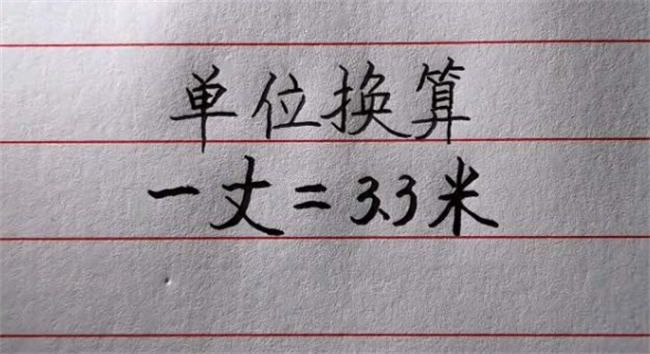 单位换算
一丈=3.3米